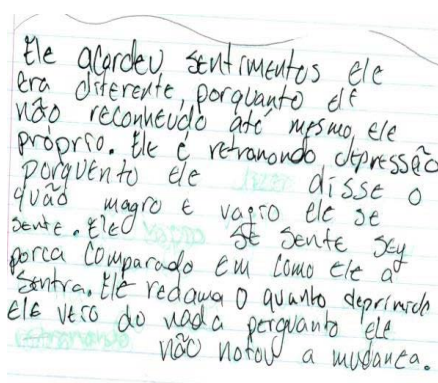 Ele acordeu sentimentos ele
era diferente, porquanto ele
não reconheudo até mesmo, ele
próprio. Ele é retranondo depressão
porquento ele disse o
quão magro e vagro ele se
sente. Ele se sente sey
porca comparado em como ele a
sentra. Ele redawa o quanto deprimido
ele veso do nada perguanto ele
não notou a mudança.